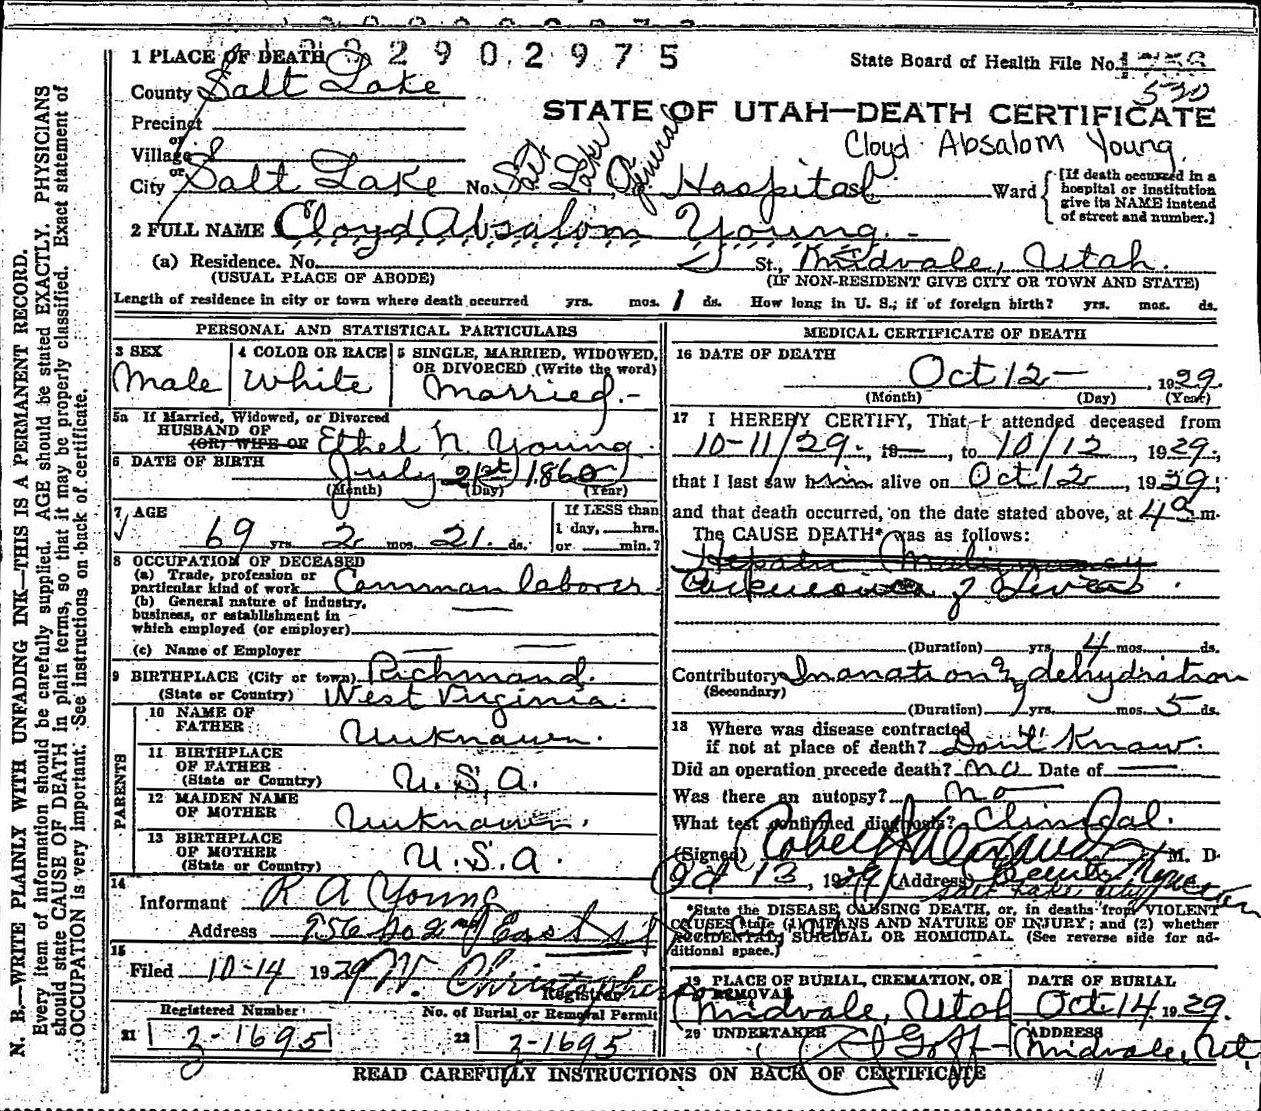 2 9 0 2 9 7 5
1 PLACE OF DEATH
State Board of Health File No.
530
County Salt Lake
STATE OF UTAH—DEATH CERTIFICATE
Precinct
Cloyd Absalom Young
or
Village
or
City Salt Lake No. Salt Lake General Hospital Ward
[If death occurred in a hospital or institution give its NAME instead of street and number.]
2 FULL NAME Cloyd Absalom Young
(a) Residence. No. St., Midvale, Utah.
(USUAL PLACE OF ABODE) (IF NON-RESIDENT GIVE CITY OR TOWN AND STATE)
Length of residence in city or town where death occurred yrs. mos. 1 ds. How long in U. S.; if of foreign birth? yrs. mos. ds.
PERSONAL AND STATISTICAL PARTICULARS
3 SEX Male
4 COLOR OR RACE White
5 SINGLE, MARRIED, WIDOWED, OR DIVORCED (Write the word) Married.-
5a If Married, Widowed, or Divorced
HUSBAND OF
(OR) WIFE OF Ethel N. Young
6 DATE OF BIRTH July 21st 1860
(Month) (Day) (Year)
7 AGE
69 yrs. 2 mos. 21. ds.
If LESS than
1 day, hrs.
or min.?
8 OCCUPATION OF DECEASED
(a) Trade, profession or
particular kind of work Common laborer
(b) General nature of industry,
business, or establishment in
which employed (or employer)
(c) Name of Employer
9 BIRTHPLACE (City or town) Richmond.
(State or Country) West Virginia.
PARENTS
10 NAME OF
FATHER Unknown.
11 BIRTHPLACE
OF FATHER
(State or Country) U.S.A.
12 MAIDEN NAME
OF MOTHER Unknown.
13 BIRTHPLACE
OF MOTHER
(State or Country) U.S.A.
14
Informant R A Young
Address 256 So 2nd East St
15
Filed 10-14 1929 W. Christopherson
Registrar
Registered Number
21 2-1695
No. of Burial or Removal Permit
22 2-1695
MEDICAL CERTIFICATE OF DEATH
16 DATE OF DEATH
Oct 12- , 1929
(Month) (Day) (Year)
17 I HEREBY CERTIFY, That I attended deceased from
10-11/29, 19 , to 10/12 1929,
that I last saw him alive on Oct 12 , 1929;
and that death occurred, on the date stated above, at 4a m.
The CAUSE DEATH* was as follows:
Hepatic Malignancy
of Liver
(Duration) yrs. 4 mos. ds.
Contributory Inanation & dehydration
(Secondary)
(Duration) yrs. mos. 5 ds.
18 Where was disease contracted
if not at place of death? Don't Know.
Did an operation precede death? no Date of
Was there an autopsy? no
What test confirmed diagnosis? Clinical.
(Signed) Robert M. D.
Oct 13, 1929 (Address) County
Salt Lake City
*State the DISEASE CAUSING DEATH, or, in deaths from VIOLENT
CAUSES state (1) MEANS AND NATURE OF INJURY; and (2) whether
ACCIDENTAL, SUICIDAL OR HOMICIDAL. (See reverse side for ad-
ditional space.)
19 PLACE OF BURIAL, CREMATION, OR
REMOVAL
Midvale, Utah
DATE OF BURIAL
Oct 14 1929.
20 UNDERTAKER
Goff
ADDRESS
Midvale, Ut
READ CAREFULLY INSTRUCTIONS ON BACK OF CERTIFICATE
N. B.—WRITE PLAINLY WITH UNFADING INK—THIS IS A PERMANENT RECORD.
Every item of information should be carefully supplied. AGE should be stated EXACTLY. PHYSICIANS
should state CAUSE OF DEATH in plain terms, so that it may be properly classified. Exact statement of
OCCUPATION is very important. See instructions on back of certificate.